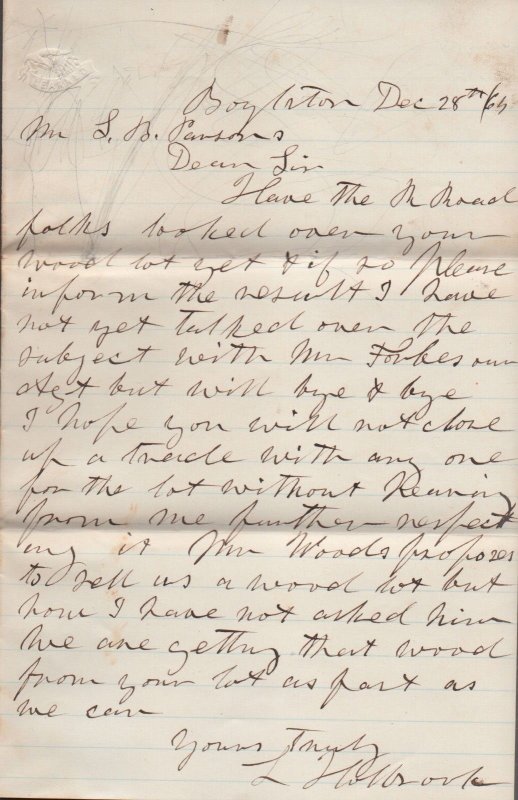 Boylston Dec 28th /64
Mr L. B. Parsons
Dear Sir
Have the R Road
folks looked over your
wood lot yet & if so please
inform the result I have
not yet talked over the
subject with Mr Forbes our
Agt but will bye & bye
I hope you will not close
up a trade with any one
for the lot without Hearing
from me further respect
ing it Mr Woods proposes
to sell us a wood lot but
how I have not asked him
We are getting that wood
from your lot as fast as
we can
Yours Truly
L Holbrook